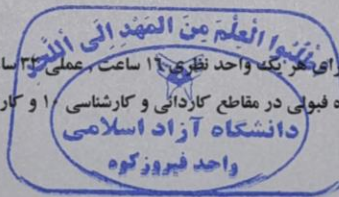 اطلبوا العلم من المهد الی اللحد
رای هر یک واحد نظری ۱۶ ساعت , عملی ۳۲ سا
ه قبولی در مقاطع کاردانی و کارشناسی ۱۰ و کار
دانشگاه آزاد اسلامی
واحد فیروزکوه